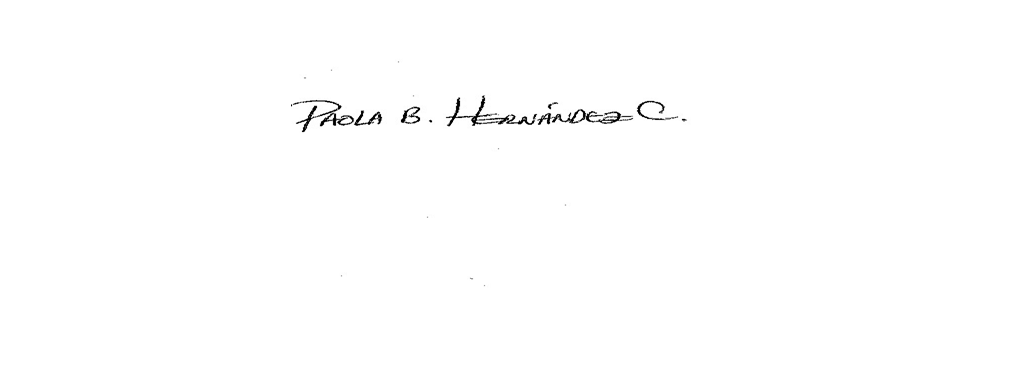 PAOLA B. HERNÁNDEZ C.